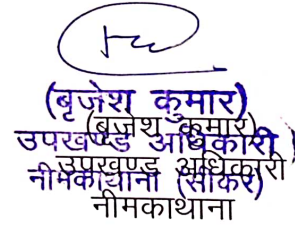 (बृजेश कुमार)
(बृजेश कुमार)
उपखण्ड अधिकारी
उपखण्ड अधिकारी
नीमकाथाना (सीकर)
नीमकाथाना